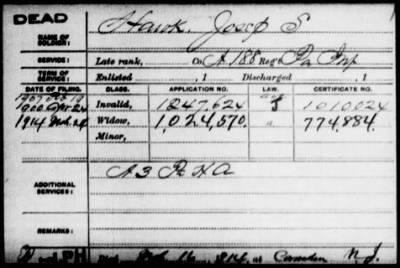 DEAD
NAME OF SOLDIER: Hawk, Josep S
SERVICE: Late rank, Co. A 188 Reg't Pa Inf
TERM OF SERVICE: Enlisted , 1 Discharged , 1
DATE OF FILING. CLASS. APPLICATION NO. LAW. CERTIFICATE NO.
1907
1900 Apr 24 Invalid, 1247,624 J 1010024
1914 Widow, 1,024,570 a 774,884.
Minor,
ADDITIONAL SERVICES: A 3 Pa H A
REMARKS:
PH 16, 1914, at Camden N.J.